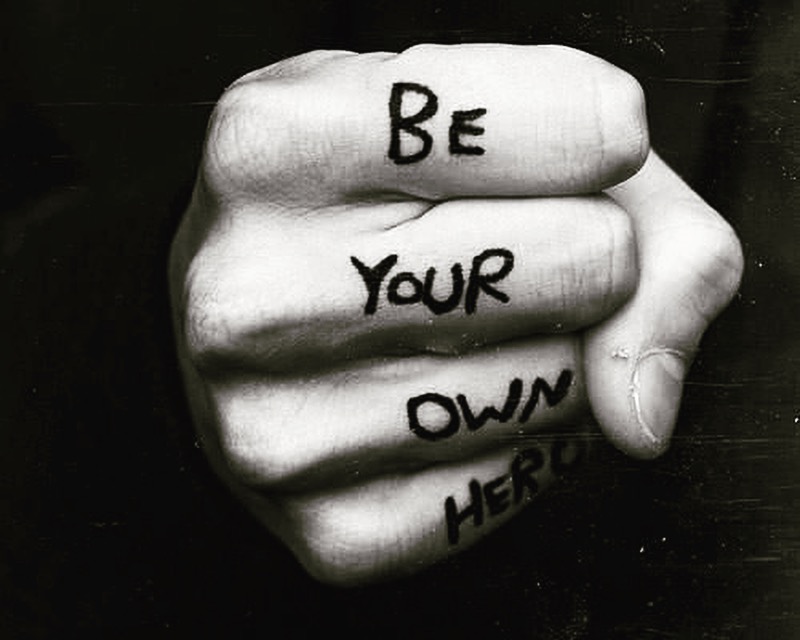 BE
YOUR
OWN
HERO